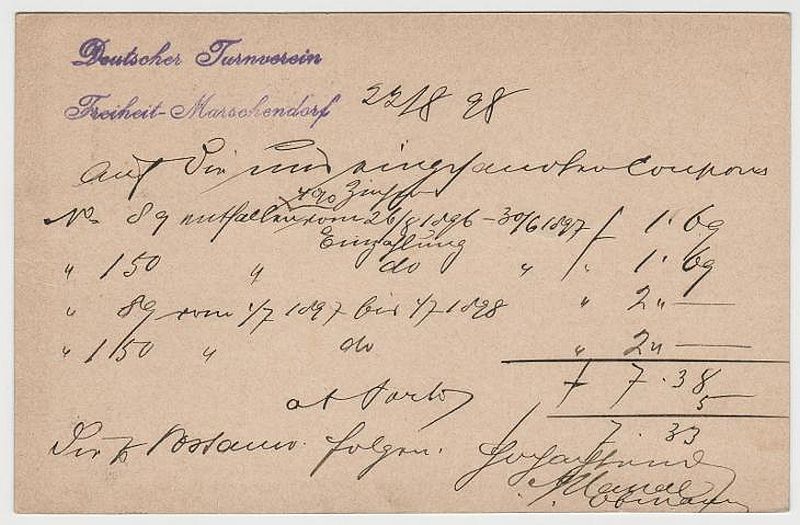 Deutscher Turnverein
Freiheit-Marschendorf 22/8 98
Auf die uns eingesandten Coupons
4% Zinsen
No 89 entfallen vom 26/8 1896 – 30/6 1897 f 1.69
Einzahlung
" 150 " do " " 1.69
" 89 vom 1/7 1897 bis 1/7 1898 " 2 " —
" 150 " do " 2 " —
f 7.38
at Porto 5
f 7.33
Die per Postanw. folgen. Hochachtend
Obmann